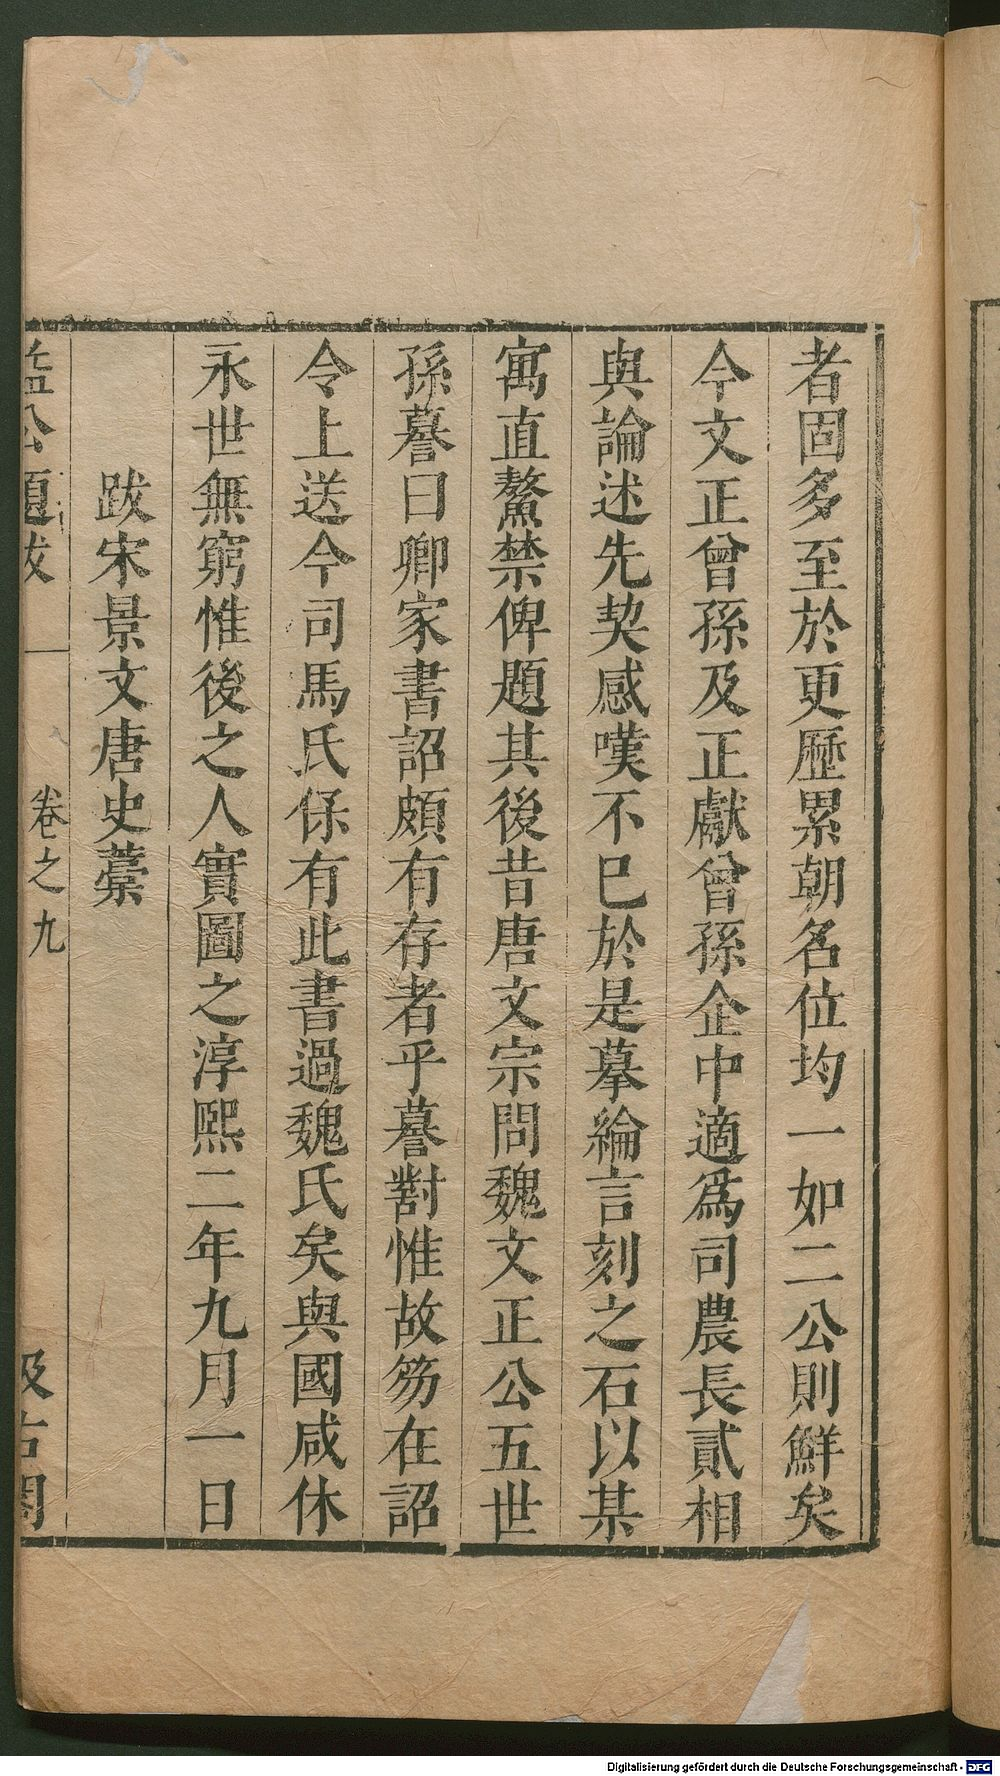 者固多至於更歷累朝名位均一如二公則鮮矣
今文正曾孫及正獻曾孫企中適爲司農長貳相
與論述先契感嘆不已於是摹綸言刻之石以某
寓直鰲禁俾題其後昔唐文宗問魏文正公五世
孫謩曰卿家書詔頗有存者乎謩對惟故笏在詔
令上送今司馬氏保有此書過魏氏矣與國咸休
永世無窮惟後之人實圖之淳熙二年九月一日
跋宋景文唐史藁
益公題跋 卷之九 汲古閣
Digitalisierung gefördert durch die Deutsche Forschungsgemeinschaft - DFG